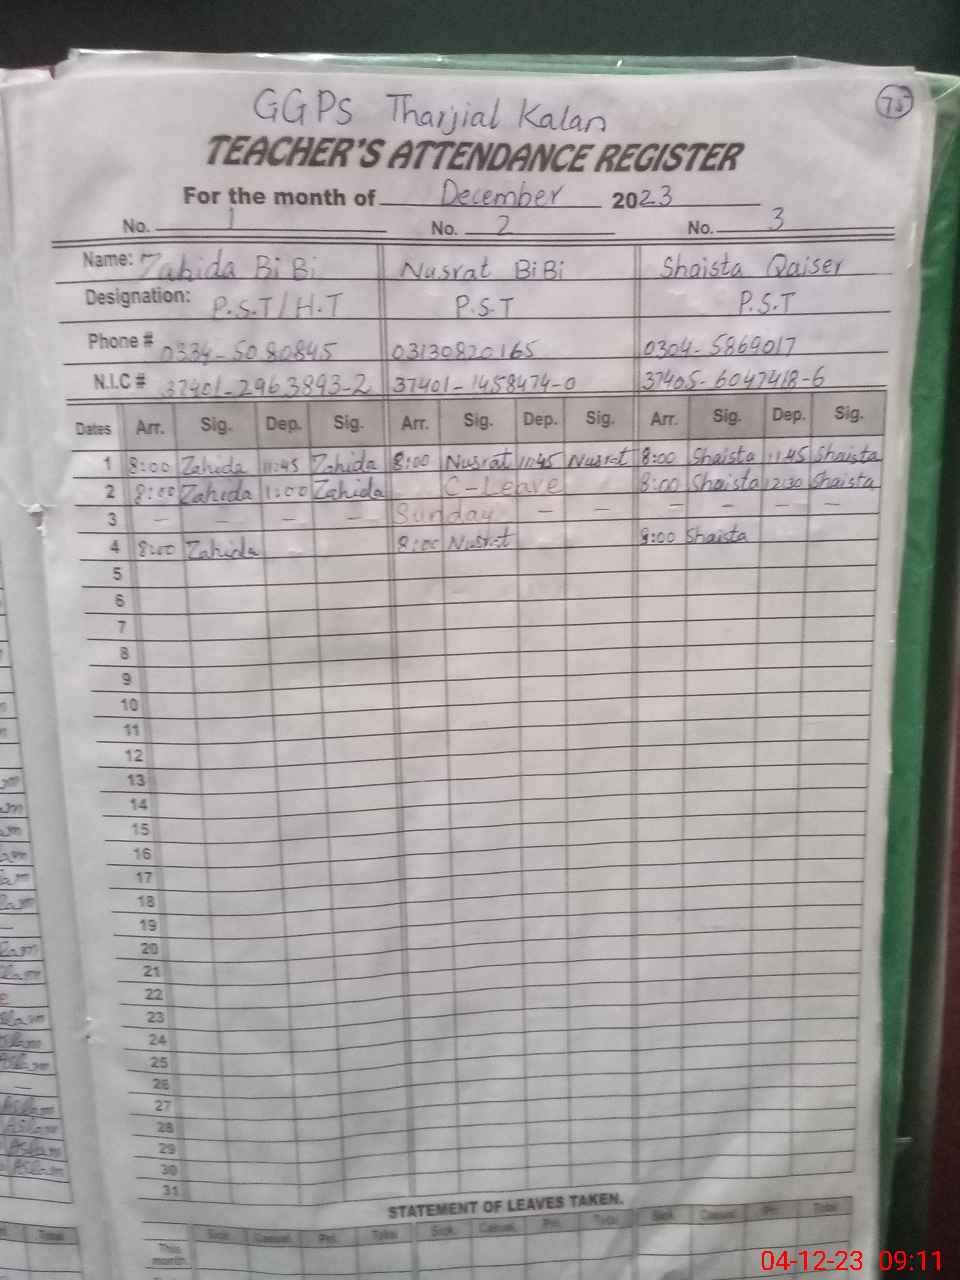 GGPS Tharjial Kalan
TEACHER'S ATTENDANCE REGISTER
For the month of December 2023
No. 1 No. 2 No. 3
Name: Zahida BiBi Nusrat BiBi Shaista Qaiser
Designation: P.S.T/H.T P.S.T P.S.T
Phone # 0334-5080845 03130820165 0304-5869017
N.I.C # 37401-2963893-2 37401-1458474-0 37405-6047418-6
Dates Arr. Sig. Dep. Sig. Arr. Sig. Dep. Sig. Arr. Sig. Dep. Sig.
1 8:00 Zahida 11:45 Zahida 8:00 Nusrat 11:45 Nusrat 8:00 Shaista 11:45 Shaista
2 8:00 Zahida 1:00 Zahida C-Leave 8:00 Shaista 12:30 Shaista
3 — — — — Sunday — — — — — —
4 8:00 Zahida 8:00 Nusrat 8:00 Shaista
5
6
7
8
9
10
11
12
13
14
15
16
17
18
19
20
21
22
23
24
25
26
27
28
29
30
31
STATEMENT OF LEAVES TAKEN.
Sick. Casual. Pri. Total Sick. Casual. Pri. Total Sick. Casual. Pri. Total
This
month.
04-12-23 09:11